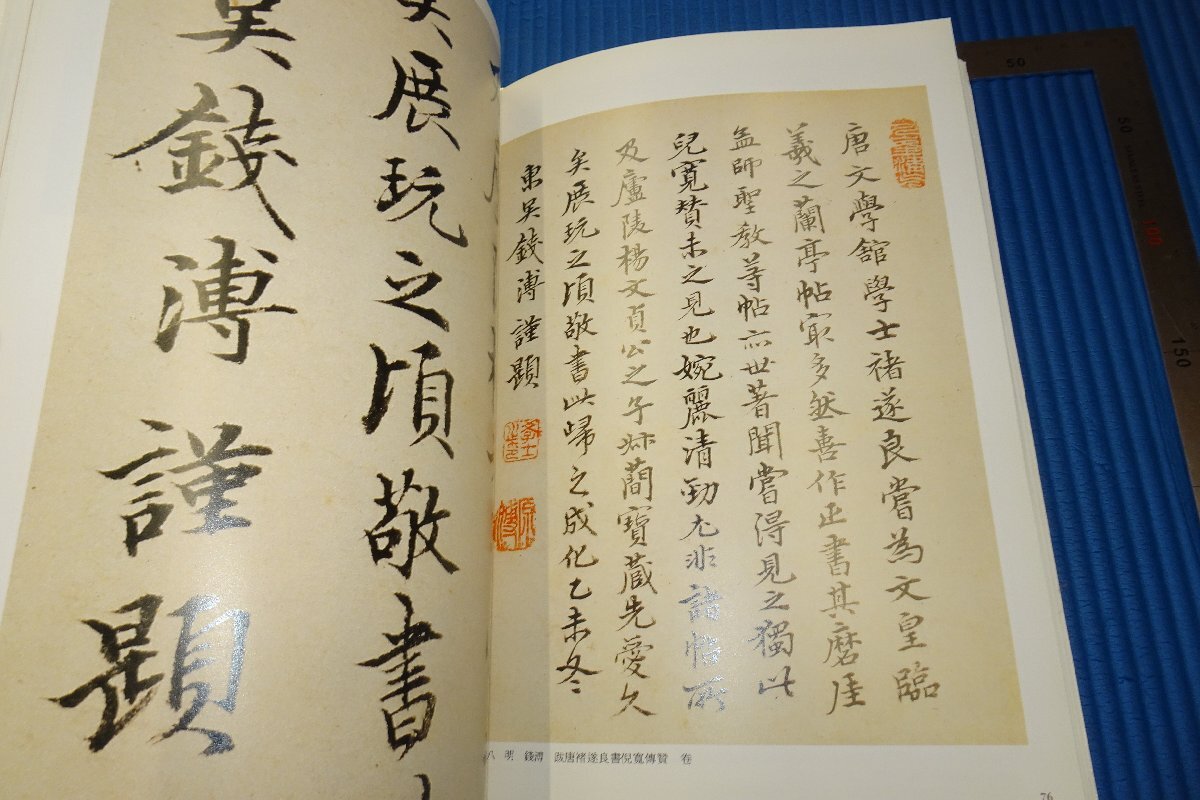 唐文學舘學士褚遂良嘗為文皇臨
羲之蘭亭帖㝡多然善作正書其磨崖
孟師聖教等帖亦世著聞嘗得見之獨此
兒寬贊未之見也婉麗清勁尤非諸帖所
及廬陵楊文貞公之子叔簡寶蔵先愛久
矣展玩之頃敬書此歸之成化乙未冬
東吳錢溥謹題
八 明 錢溥 跋唐褚遂良書倪寬傳贊 卷
76
矣展玩之頃敬書
吳錢溥謹題
50
50
100
150